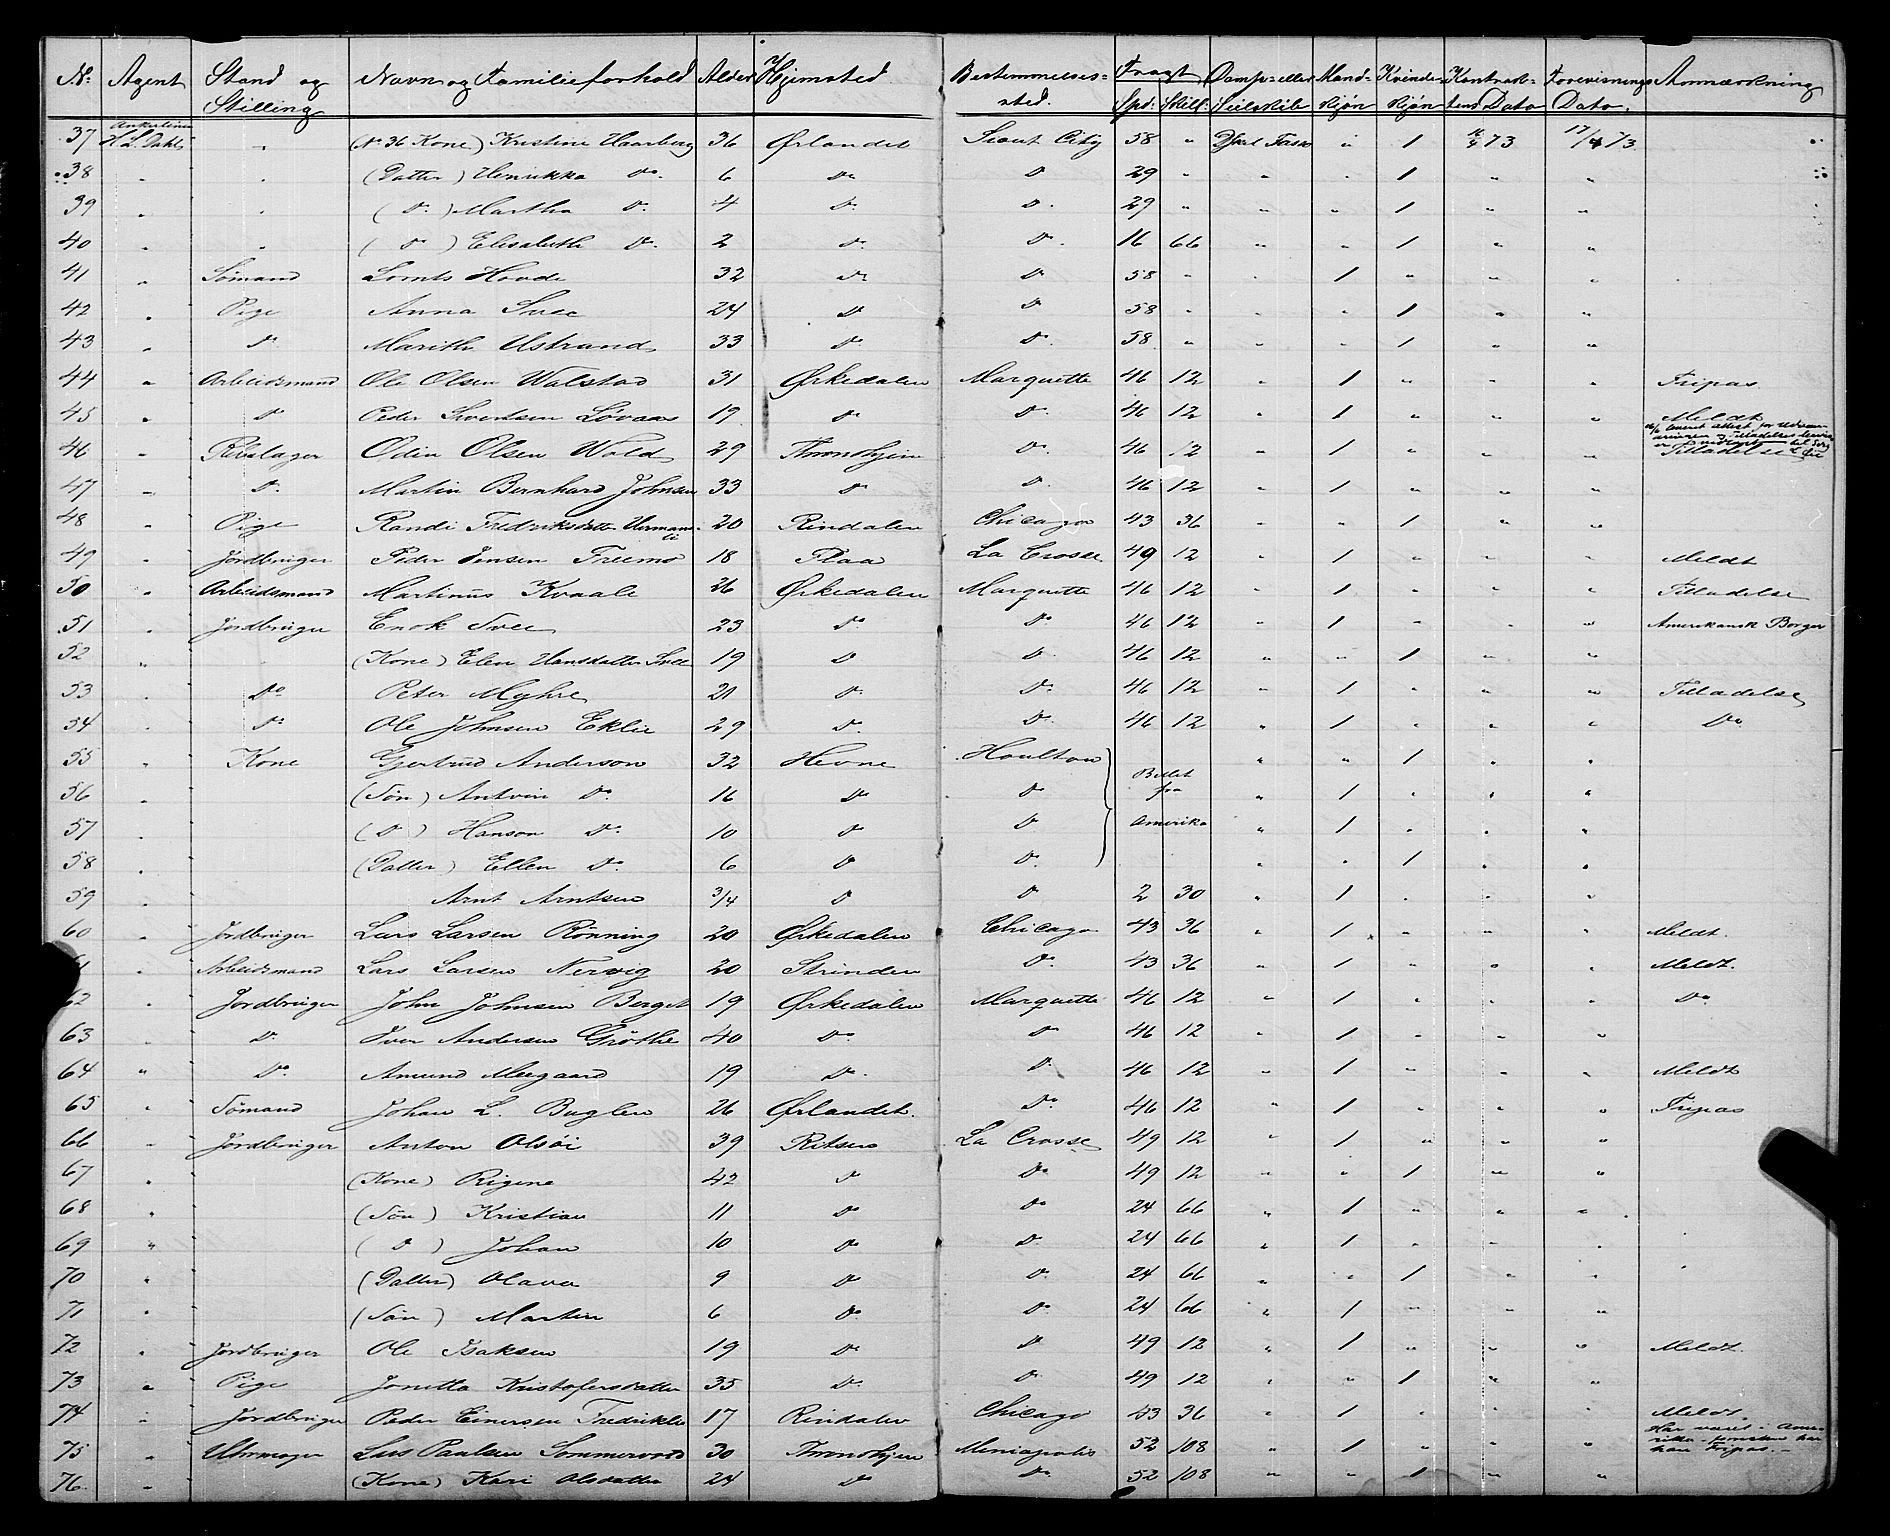 No. Agent Stand og Stilling Navn og Familieforhold Alder Hjemsted Bestemmelses-sted. Fragt Spd: Skill: Damp- eller Seilskib Mand-kjøn Kvinde-kjøn Kontrak-tens Dato Forevisnings Dato. Anmærkning
37 Ankerlinie H. L. Dahl " (No 36 Kone) Kristine Haarberg 36 Ørlandet Sioux City 58 " " 1 73 17/4 73
38 " " (Datter) Henrikka Do 6 Do Do 29 " " " 1 " "
39 " " (Do) Martha Do 4 Do Do 29 " " " 1 " "
40 " " (Do) Elisabeth Do 2 Do Do 16 66 " " 1 " "
41 " Sømand Lornts Hovde 32 Do Do 58 " " 1 " " "
42 " Pige Anna Svee 24 Do Do 58 " " " 1 " "
43 " Do Marith Ustrand 33 Do Do 58 " " " 1 " "
44 " Arbeidsmand Ole Olsen Walstad 31 Ørkedalen Marquette 46 12 " 1 " " " Fripas
45 " Do Peder Sivertsen Løvaas 19 Do Do 46 12 " 1 " " " Meldt
46 " Rebslager Odin Olsen Wold 29 Throndhjem Do 46 12 " 1 " " " Tilladelse
47 " Do Martin Bernhard Johnsen 33 Do Do 46 12 " 1 " " "
48 " Pige Randi Fredriksdatter Hermansli 20 Rindalen Chicago 43 36 " " 1 " "
49 " Jordbruger Peder Jensen Freemo 18 Flaa La Crosse 49 12 " 1 " " " Meldt
50 " Arbeidsmand Martinus Kvaale 26 Ørkedalen Marquette 46 12 " 1 " " " Tilladelse
51 " Jordbruger Enok Svee 23 Do Do 46 12 " 1 " " " Amerikansk Borger
52 " (Kone) Elen Hansdatter Svee 19 Do Do 46 12 " " 1 " "
53 " Do Peter Myhre 21 Do Do 46 12 " 1 " " " Tilladelse
54 " Do Ole Johnsen Eklie 29 Do Do 46 12 " 1 " " " Do
55 " Kone Gjertrud Anderson 32 Hevne Houlton " " 1 " "
56 " (Søn) Antvin Do 16 Do Do Billet fra " 1 " " "
57 " (Do) Hanson Do 10 Do Do Amerika " 1 " " "
58 " (Datter) Ellen Do 6 Do Do " " 1 " "
59 " Arnt Arntsen 3/4 Do Do 2 30 " 1 " " "
60 " Jordbruger Lars Larsen Rønning 20 Ørkedalen Chicago 43 36 " 1 " " " Meldt.
61 " Arbeidsmand Lars Larsen Nervig 20 Strinden Do 43 36 " 1 " " " Meldt.
62 " Jordbruger John Johnsen Berget 19 Ørkedalen Marquette 46 12 " 1 " " " Do
63 " Do Iver Andersen Grøthe 40 Do Do 46 12 " 1 " " "
64 " Do Amund Meegaard 19 Do Do 46 12 " 1 " " " Meldt
65 " Sømand Johan L. Buglen 26 Ørlandet. Do 46 12 " 1 " " " Fripas
66 " Jordbruger Anton Olsøi 39 Ritsen La Crosse 49 12 " 1 " " "
67 " (Kone) Rigene 42 Do Do 49 12 " " 1 " "
68 " (Søn) Kristian 11 Do Do 24 66 " 1 " " "
69 " (Do) Johan 10 Do Do 24 66 " 1 " " "
70 " (Datter) Olava 9 Do Do 24 66 " " 1 " "
71 " (Søn) Martin 6 Do Do 24 66 " 1 " " "
72 " Jordbruger Ole Isaksen 19 Do Do 49 12 " 1 " " " Meldt.
73 " Pige Jonetta Kristofersdatter 35 Do Do 49 12 " " 1 " "
74 " Jordbruger Peder Einersen Fredriksli 17 Rindalen Chicago 43 36 " 1 " " " Meldt.
75 " Uhrmager Lars Paulsen Sommervold 30 Throndhjem Meniapolis 52 108 " 1 " " " Har været i Amerika hvorfor han har Fripas.
76 " (Kone) Kari Olsdatter 24 Do Do 52 108 " " 1 " "